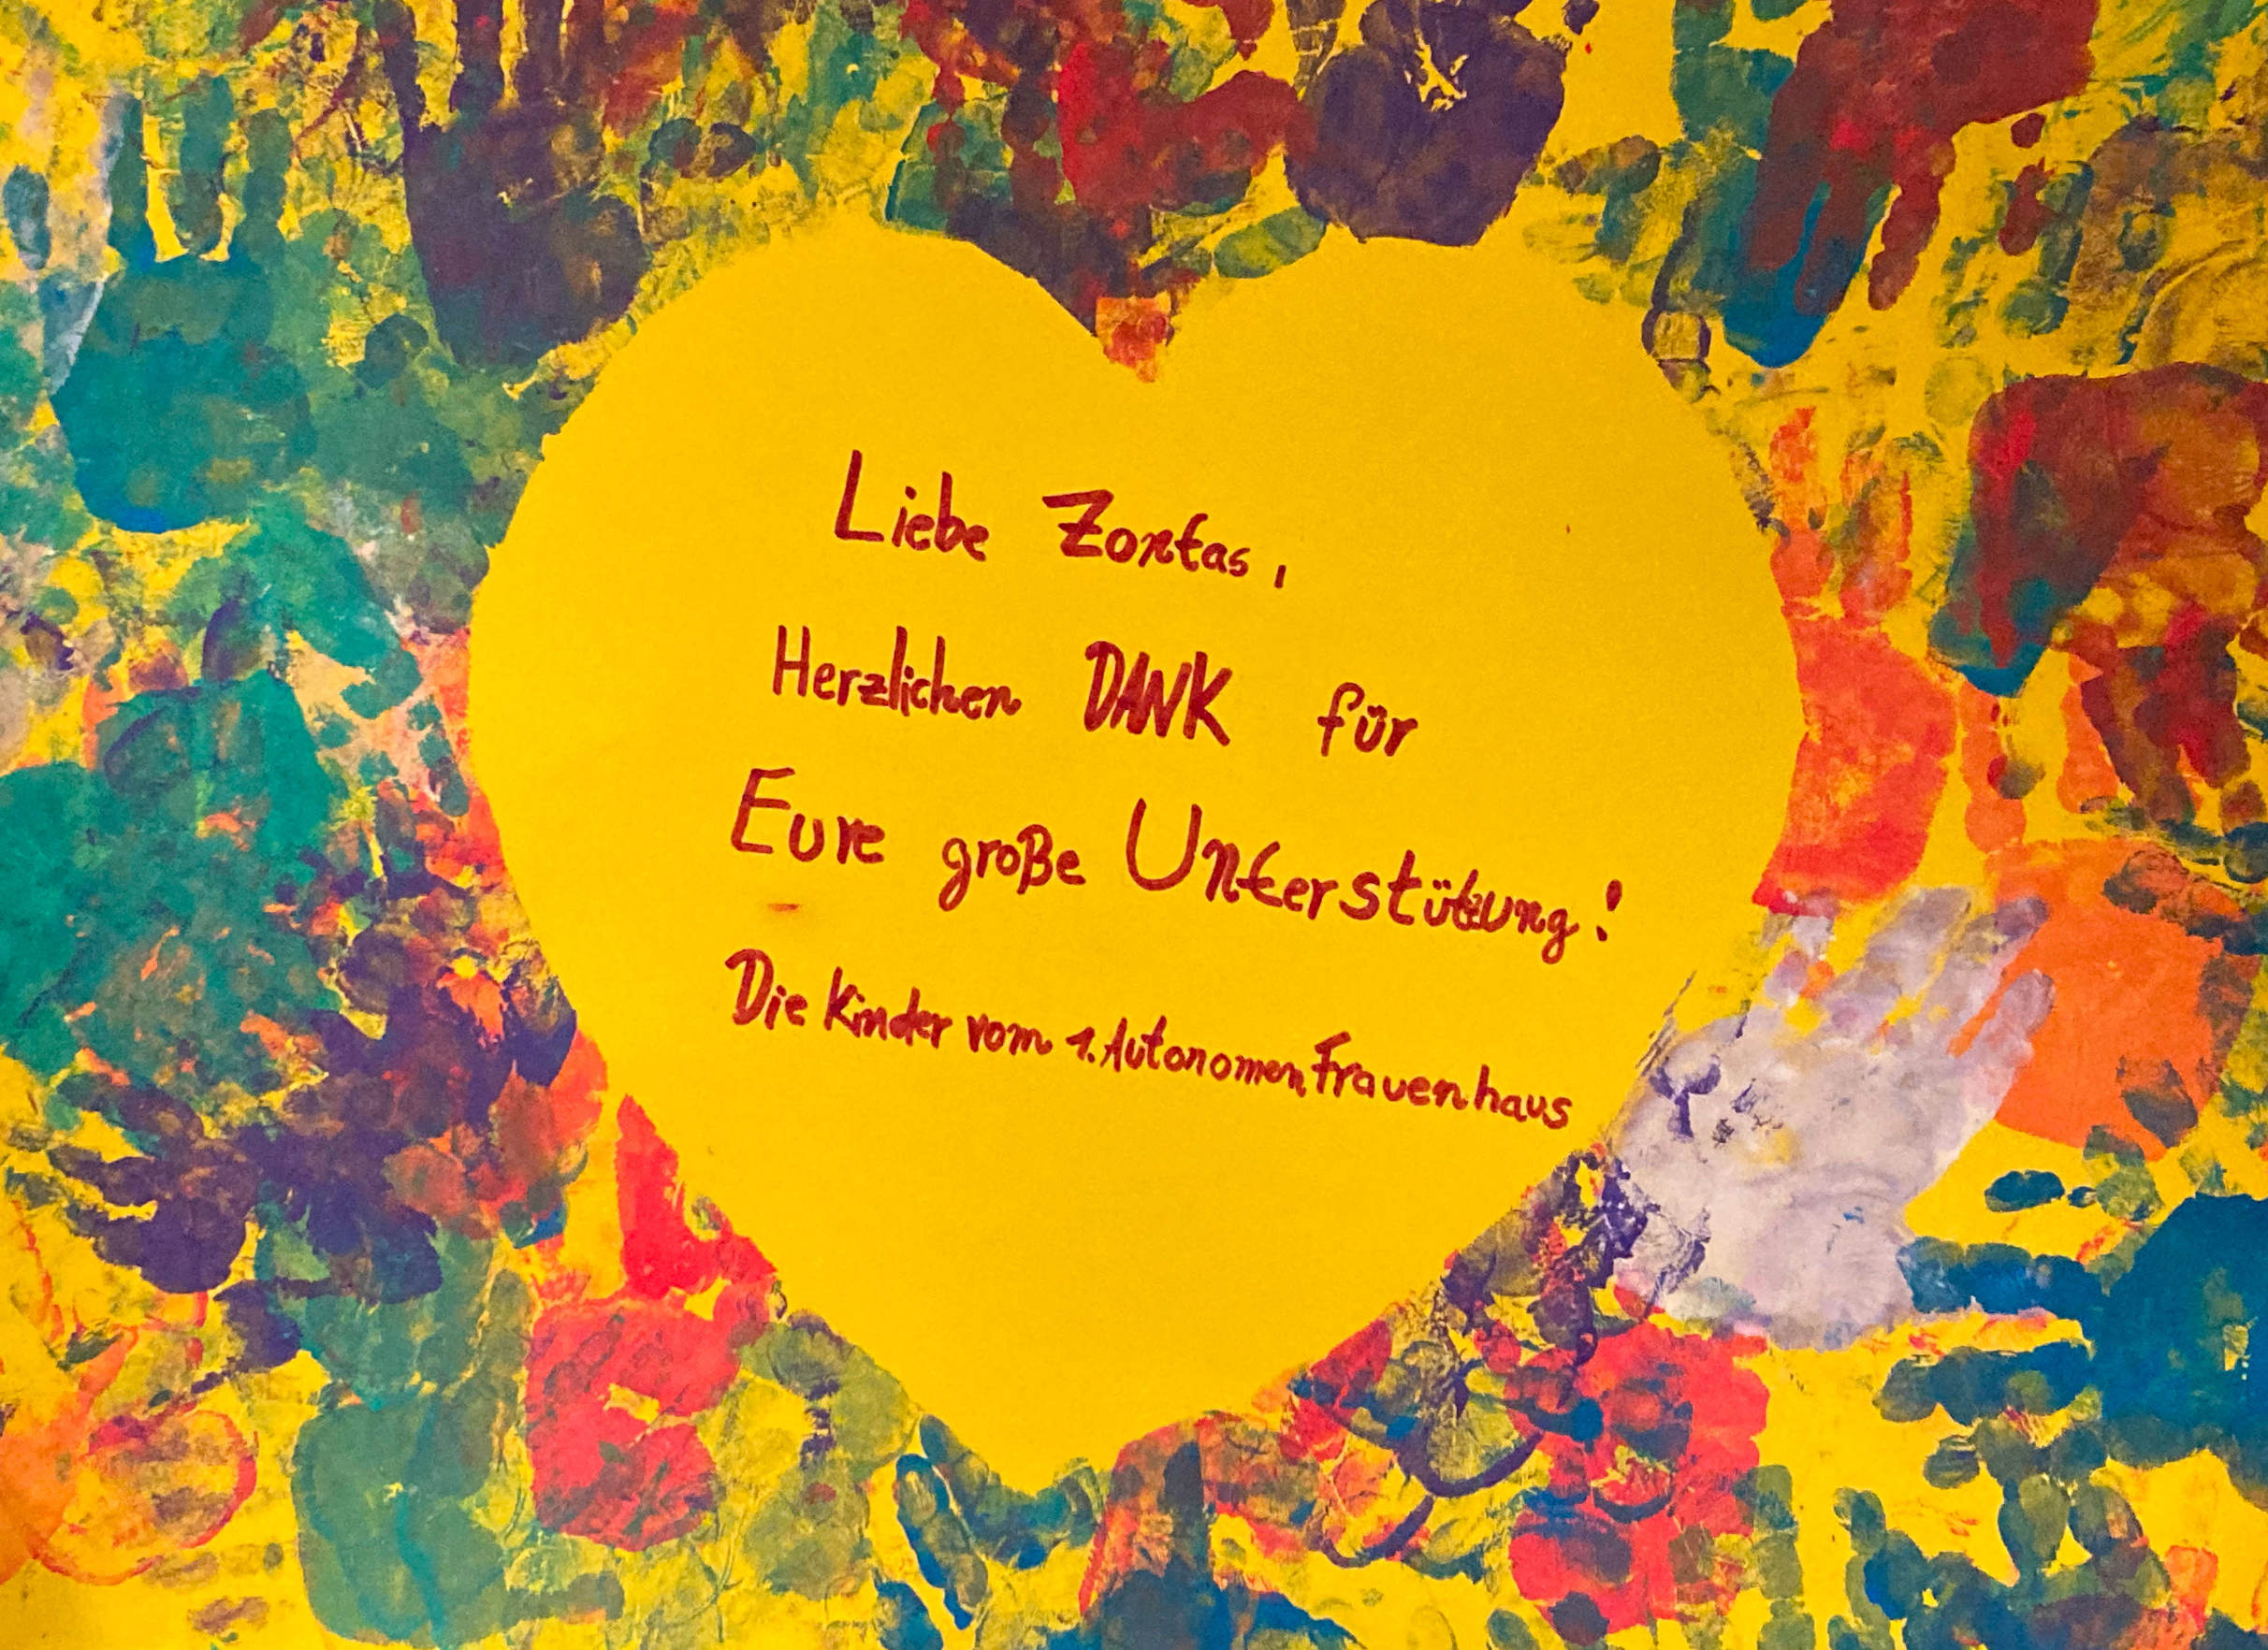 Liebe Zontas,
Herzlichen DANK für
Eure große Unterstützung!
Die Kinder vom 1. Autonomen Frauenhaus